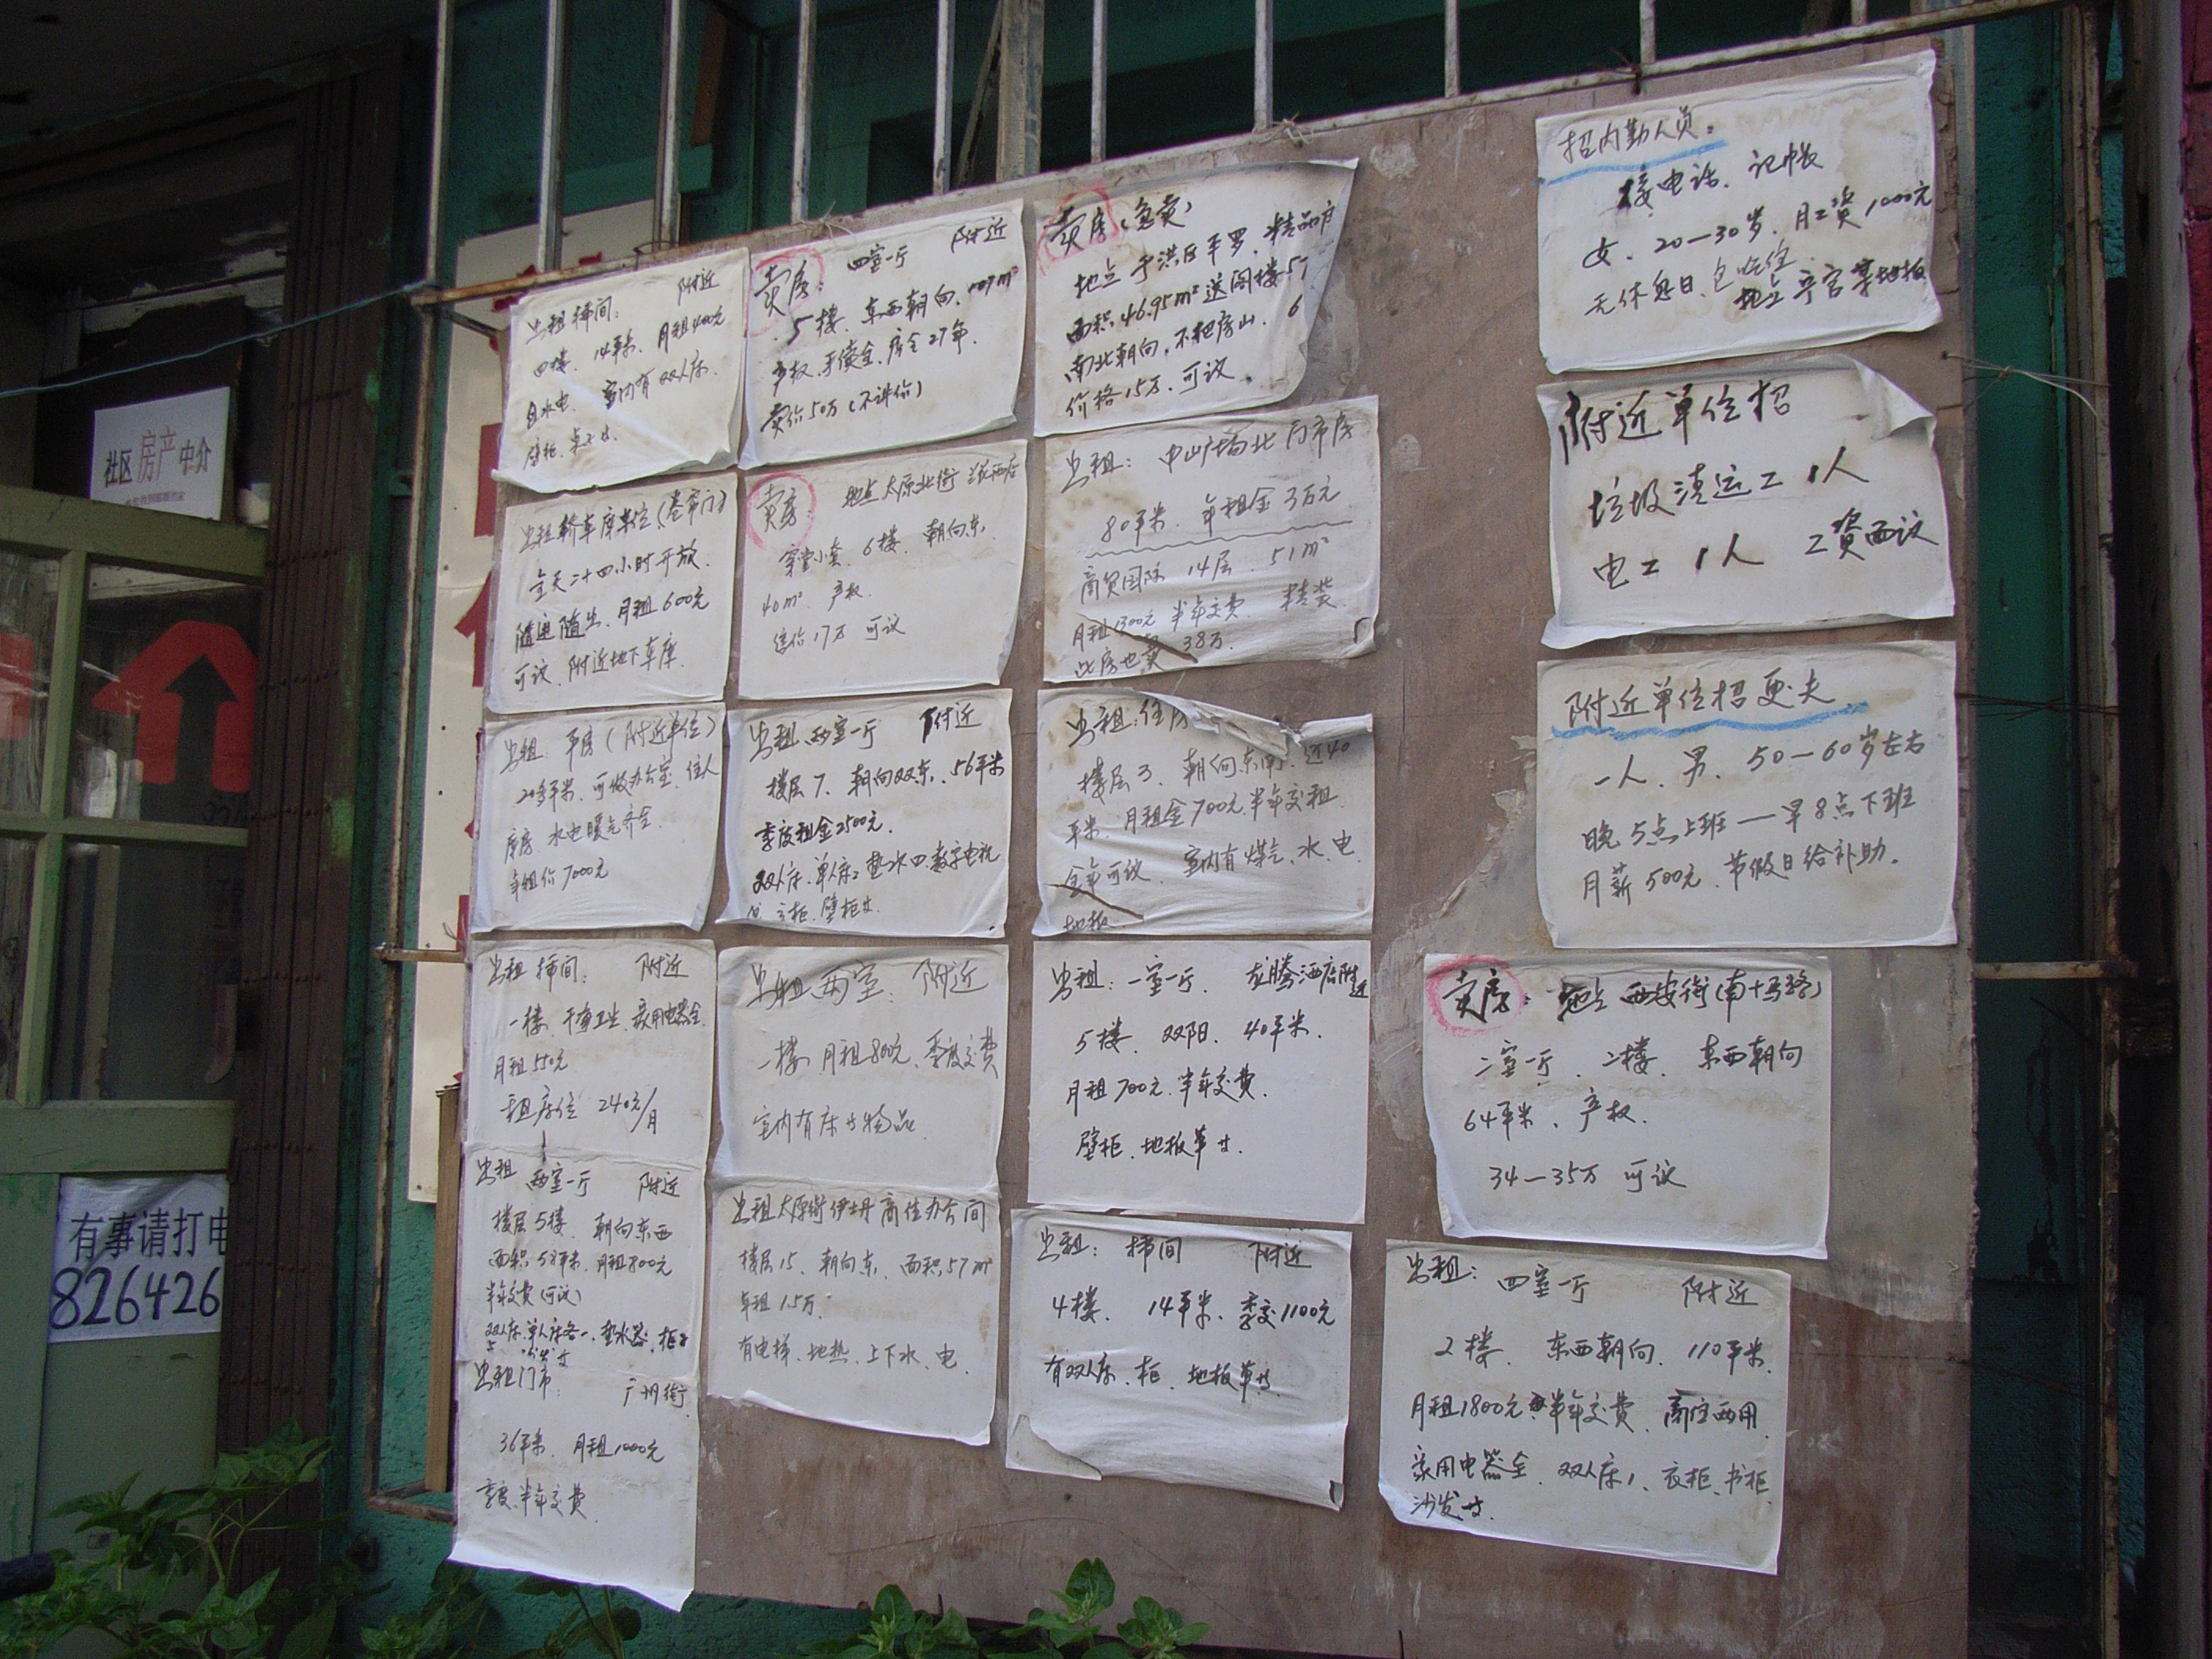 社区房产中介
有事请打电
826426
出租 插间: 附近
四楼、14平米、月租400元
包水电、室内有双人床、
壁柜、桌子等
出租轿车库车位(卷帘门)
全天二十四小时开放、
随进随出、月租600元
可议、附近地下车库
出租: 平房(附近单位)
20多平米、可做办公室、住人
库房、水电暖气齐全、
年租价7000元
出租 插间: 附近
一楼、干净卫生、家用电器全
月租550元
租床位 240元/月
出租 两室一厅 附近
楼层5楼、朝向东西
面积58平米、月租800元
半年交费(可议)
双人床、单人床各一、热水器、柜子
沙发等
出租门市: 广州街
36平米、月租1000元
季度、半年交费
卖房: 四室一厅 附近
5楼、东西朝向、109m²
产权、手续全、房仝27年、
卖价50万(不讲价)
卖房: 地点太原北街
6楼、朝向东、
40m²、产权、
售价17万 可议
出租 两室一厅 附近
楼层7、朝向双东、56平米
季度租金2500元、
双人床、单人床、热水四、数字电视
壁柜等
出租 两室: 附近
一楼、月租800元、季度交费
室内有床等物品
出租太原街伊士丹商住办公间
楼层15、朝向东、面积57m²
年租1.5万
有电梯、地热、上下水、电
卖房(急卖)
地点于洪区平罗、精品户
面积46.95m²送阁楼57
南北朝向、不把房山、6
价格15万、可议
出租: 中山广场北门市房
80平米、年租金3万元
商贸国际 14层、51m²
月租1300元 半年交费、精装、
此房也卖 38万、
出租: 住房
楼层3、朝向东南、近40
平米、月租金700元、半年交租
全年可议、室内有煤气、水、电
地板
出租: 一室一厅、龙腾酒店附近
5楼、双阳、40平米、
月租700元、半年交费、
壁柜、地板革等
出租: 插间 附近
4楼 14平米、季交1100元
有双人床、柜、地板革等
招内勤人员:
接电话、记帐
女、20—30岁、月工资1000元
无休息日、包吃住
附近单位招
垃圾清运工1人
电工1人 工资面议
附近单位招更夫
一人、男、50—60岁左右
晚5点上班—早8点下班
月薪500元、节假日给补助。
卖房: 地点 西安街(南十马路)
二室一厅、二楼、东西朝向
64平米、产权、
34—35万 可议
出租: 四室一厅 附近
2楼、东西朝向、110平米、
月租1800元、半年交费、商住两用
家用电器全、双人床1、衣柜、书柜、
沙发等、